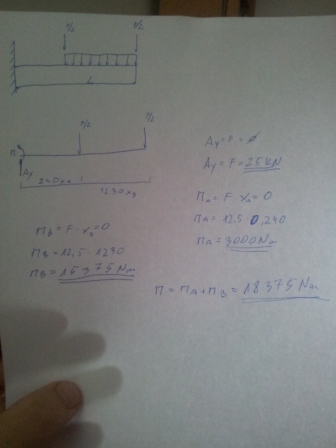 F/2
F/2
L
F/2
F/2
M
Ay
240 xa
1230 xb
Ay - F = 0
Ay = F = 25 kN
Ma - F · Xa = 0
Ma = 12,5 · 0,240
Ma = 3000 Nm
Mb - F · Xb = 0
MB = 12,5 · 1230
MB = 15 375 Nm
M = MA + MB = 18 375 Nm